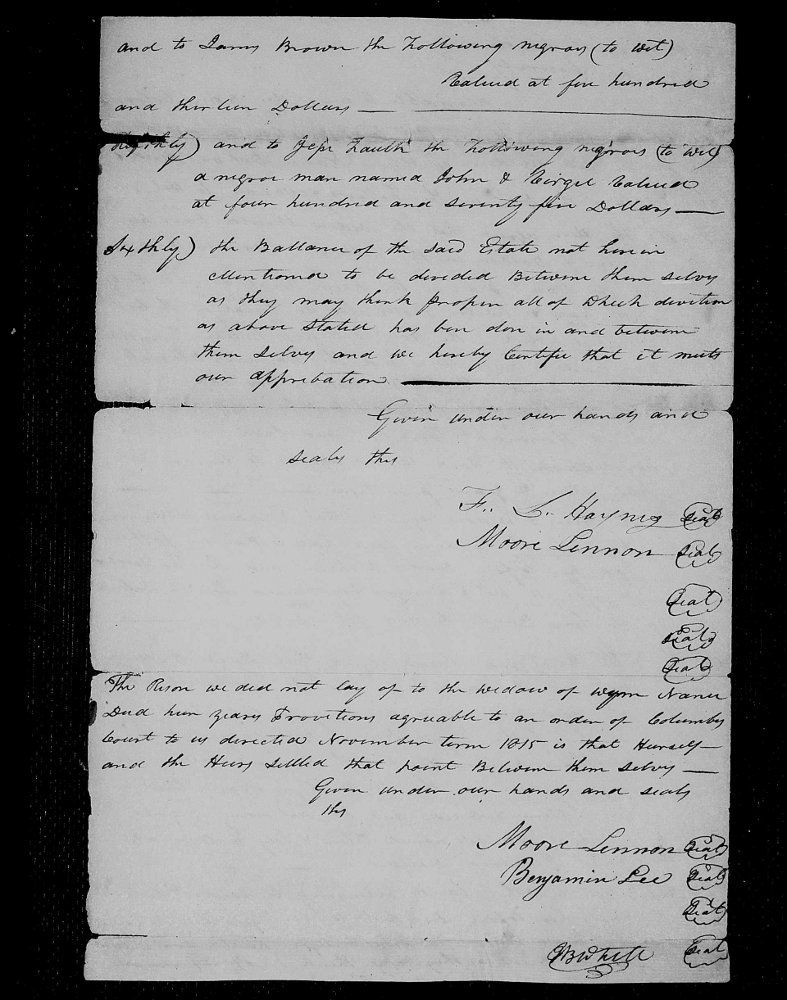 and to James Brown the Following negroes (to wit)
Valued at five hundred
and thirteen Dollars
and to Jesse Faulk the Following negroes (to wit)
a negroe man named John & Virgil Valued
at four hundred and seventy five Dollars
Sixthly) the Ballance of the said Estate not herein
Mentioned to be devided Betwine them selves
as they may think propen all of Which devition
as above stated has ben don in and betwene
them selves and we hereby Certifie that it meets
our approbation
Given under our hands and
seals this
F. L. Haynes Seal
Moore Lennon Seal
Seal
Seal
Seal
The Reson we did not lay of to the widow of Wynn Nance
Decd hur years Provitions agreable to an order of Columbus
Court to us directed November term 1815 is that Hurself
and the Heirs settled that point Betwine them selves
Given under our hands and seals
this
Moore Lennon Seal
Benjamin Lee Seal
Seal
Seal